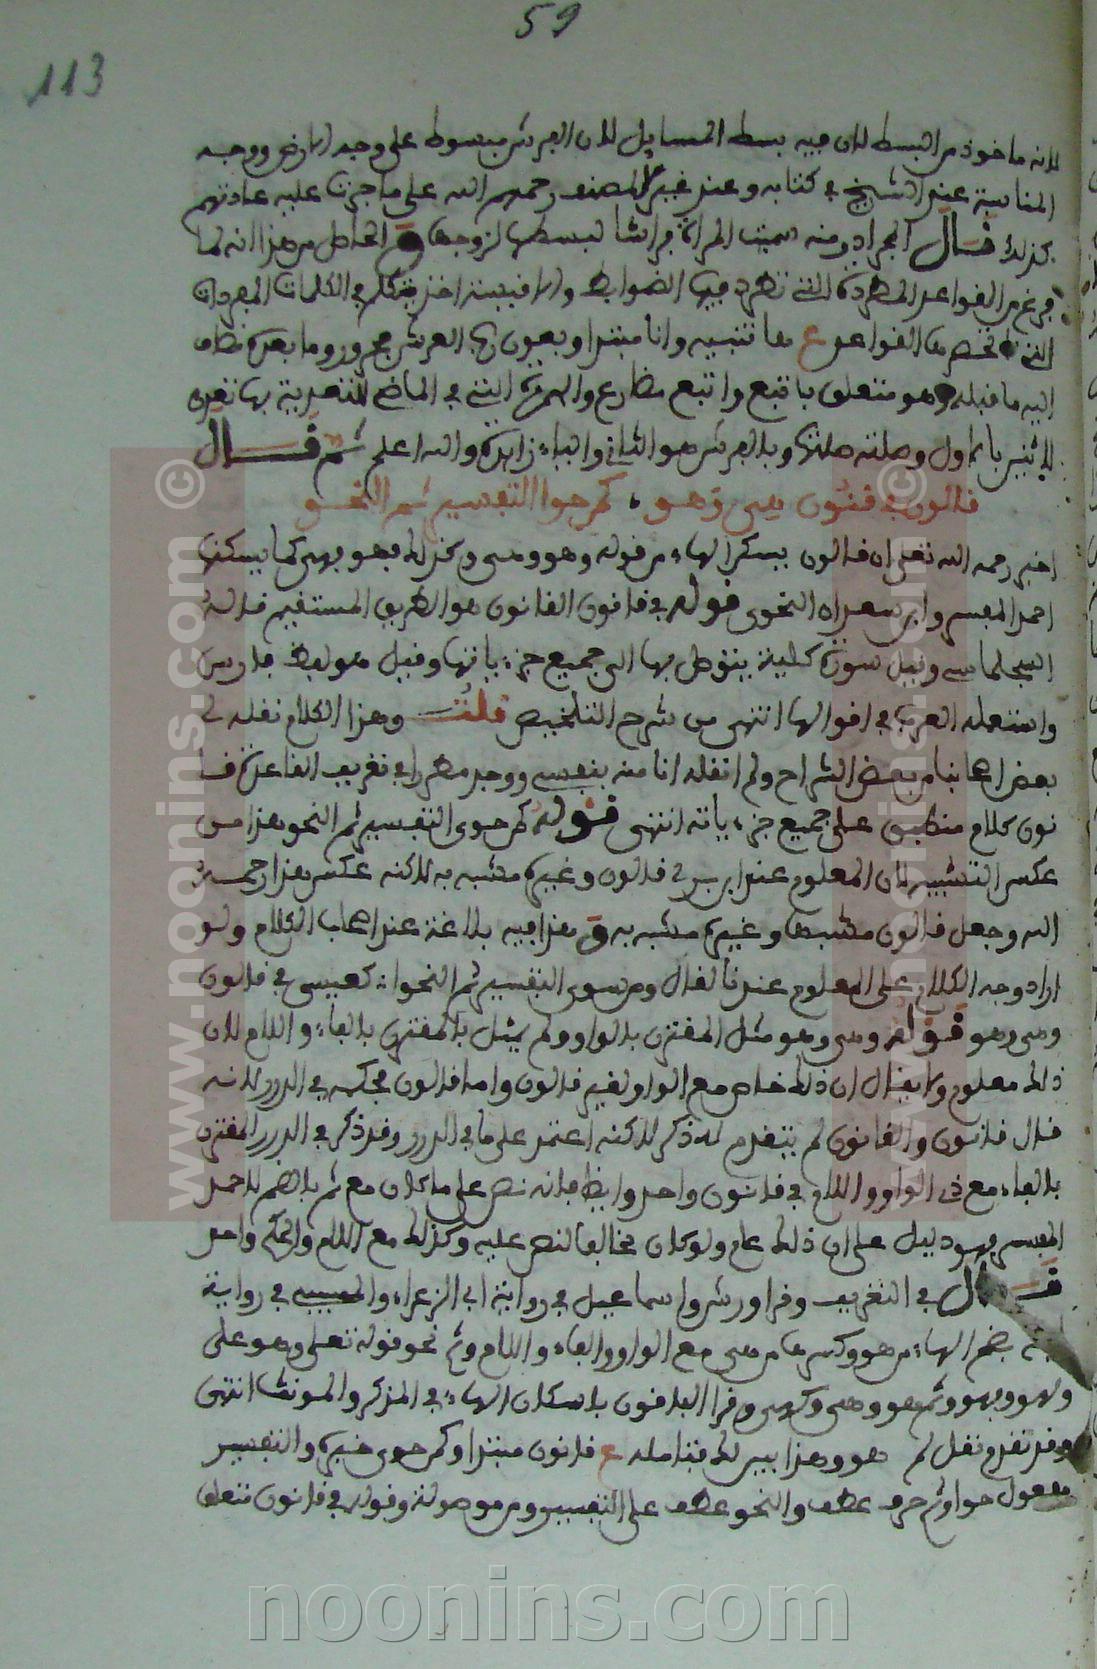 59
113
لانه ماخوذ من البسط لان فيه بسط المسايل لان العرش مبسوط على وجه الارض ووجه
المناسبة عند الشيخ في كتابه وعند غير المصنف رحمهم الله على ما جرت عليه عادتهم
كذلك قال الجرادي ومنه سميت المراة فراشا لبسطها لزوجها الحاصل من هذا انه لما
فرغ من القواعد المطردة التي تطرد فيها الضوابط والاقيسة اخذ يتكلم في الكلمات المفردات
التي القواعد ع ها تنبيه وانا مبتدا وبعون العرش مجرور وما بعده مضاف
اليه ما قبله وهو متعلق باتبع واتبع مضارع والهمزة التي في الماضي للتعدية بها تعدى
للاثنين بالاول وصلته وبالعرش هو الثاني والباء زايدة والله اعلم ثم قال
قالون في قنون وهي وهو ، كمن حوا التفسير ثم النحو
اخبر رحمه الله تعلى ان قالون يسكن الهاء من قوله وهو وهي وكذلك فهو فهي كما يسكنها
احمد المفسر وابن سعدان النحوي قوله في قانون القانون هو الطريق المستقيم قاله
السجلماسي وقيل سورة كلية يتوصل بها الى جميع جزءياتها وقيل هو لفظ فارسي
واستعمله العرب في اقوالها انتهى من شرح التلخيص قلت وهذا الكلام نقله لي
بعض اصحابنا من بعض الشراح ولم انقله انا منه بنفسي ووجد مطررا في تعريف القاعدة قا
نون كلام منطبق على جميع جزءياته انتهى قوله كمن حوى التفسير ثم النحو هذا من
عكس التشبيه لان المعلوم عند ابن بري قالون وغيره مشبه به لاكنه عكس هذا رحمه
الله وجعل قالون مشبها وغيره مشبه به وهذا فيه بلاغة عند اصحاب الكلام ولو
اراد وجه الكلام على المعلوم عندنا لقال ومن حوى التفسير ثم النحو ا كعيسى في قانون
وهي وهو قوله وهي وهو مثل المقترن بالواو ولم يمثل بالمقترن بالفاء واللام لان
ذلك معلوم ولا يقال ان ذلك خاص مع الواو لغير قالون واما قالون فحكمه في الدرر لانه
قال قانون والقانون لم يتقدم له ذكر لاكنه اعتمد على ما في الدرر وقد ذكر في الدرر المقترن
بالفاء مع ذي الواو واللام في قانون واحد وايضا فانه نص على ما كان مع ثم بالضم لاحمد
المفسر فهو دليل على ان ذلك عام ولو كان مخالفا لنص عليه وكذلك مع اللام والحكم واحد
قال في التعريف وقرا ورش واسماعيل في رواية ابي الزعراء والمسيبي في رواية
بضم الهاء من هو وكسرها من هي مع الواو والفاء واللام وثم نحو قوله تعلى وهو على
ولهو وفهو وثم هو وهي ولهي وقرا الباقون باسكان الهاء في المذكر والمونث انتهى
وقد تقدم نقل ثم هو وهذا يبين لك فتامله ع قانون مبتدا وكمن حوى خبره والتفسير
مفعول حوا وثم حرف عطف والنحو عطف على التفسير ومن موصولة وقوله في قانون متعلق
www.noonins.com ©
www.noonins.com ©
noonins.com